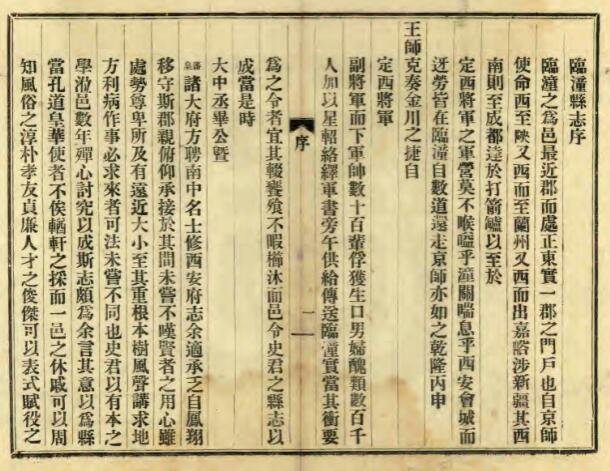 臨潼縣志序
臨潼之爲邑最近郡而處正東實一郡之門戶也自京師
使命西至陝又西而至蘭州又西而出嘉峪涉新疆其西
南則至成都達於打箭罏以至於
定西將軍之軍營莫不喉嗌乎潼關喘息乎西安會城而
迓勞皆在臨潼自數道還走京師亦如之乾隆丙申
王師克奏金川之捷自
定西將軍
副將軍而下軍帥數十百輩俘獲生口男婦醜類數百千
人加以星軺絡繹軍書旁午供給傳送臨潼實當其衝要
序
一
爲之令者宜其輟饔飧不暇櫛沐而邑令史君之縣志以
成當是時
大中丞畢公暨
藩臬諸大府方聘南中名士修西安府志余適承乏自鳳翔
移守斯郡親俯仰承接於其間未嘗不嘆賢者之用心雖
處勢尊卑所及有遠近大小至其重根本樹風聲講求地
方利病作事必求來者可法未嘗不同也史君以有本之
學涖邑數年殫心討究以成斯志頗爲余言其意以爲縣
當孔道皇華使者不俟輶軒之採而一邑之休戚可以周
知風俗之淳朴孝友貞廉人才之俊傑可以表式賦役之